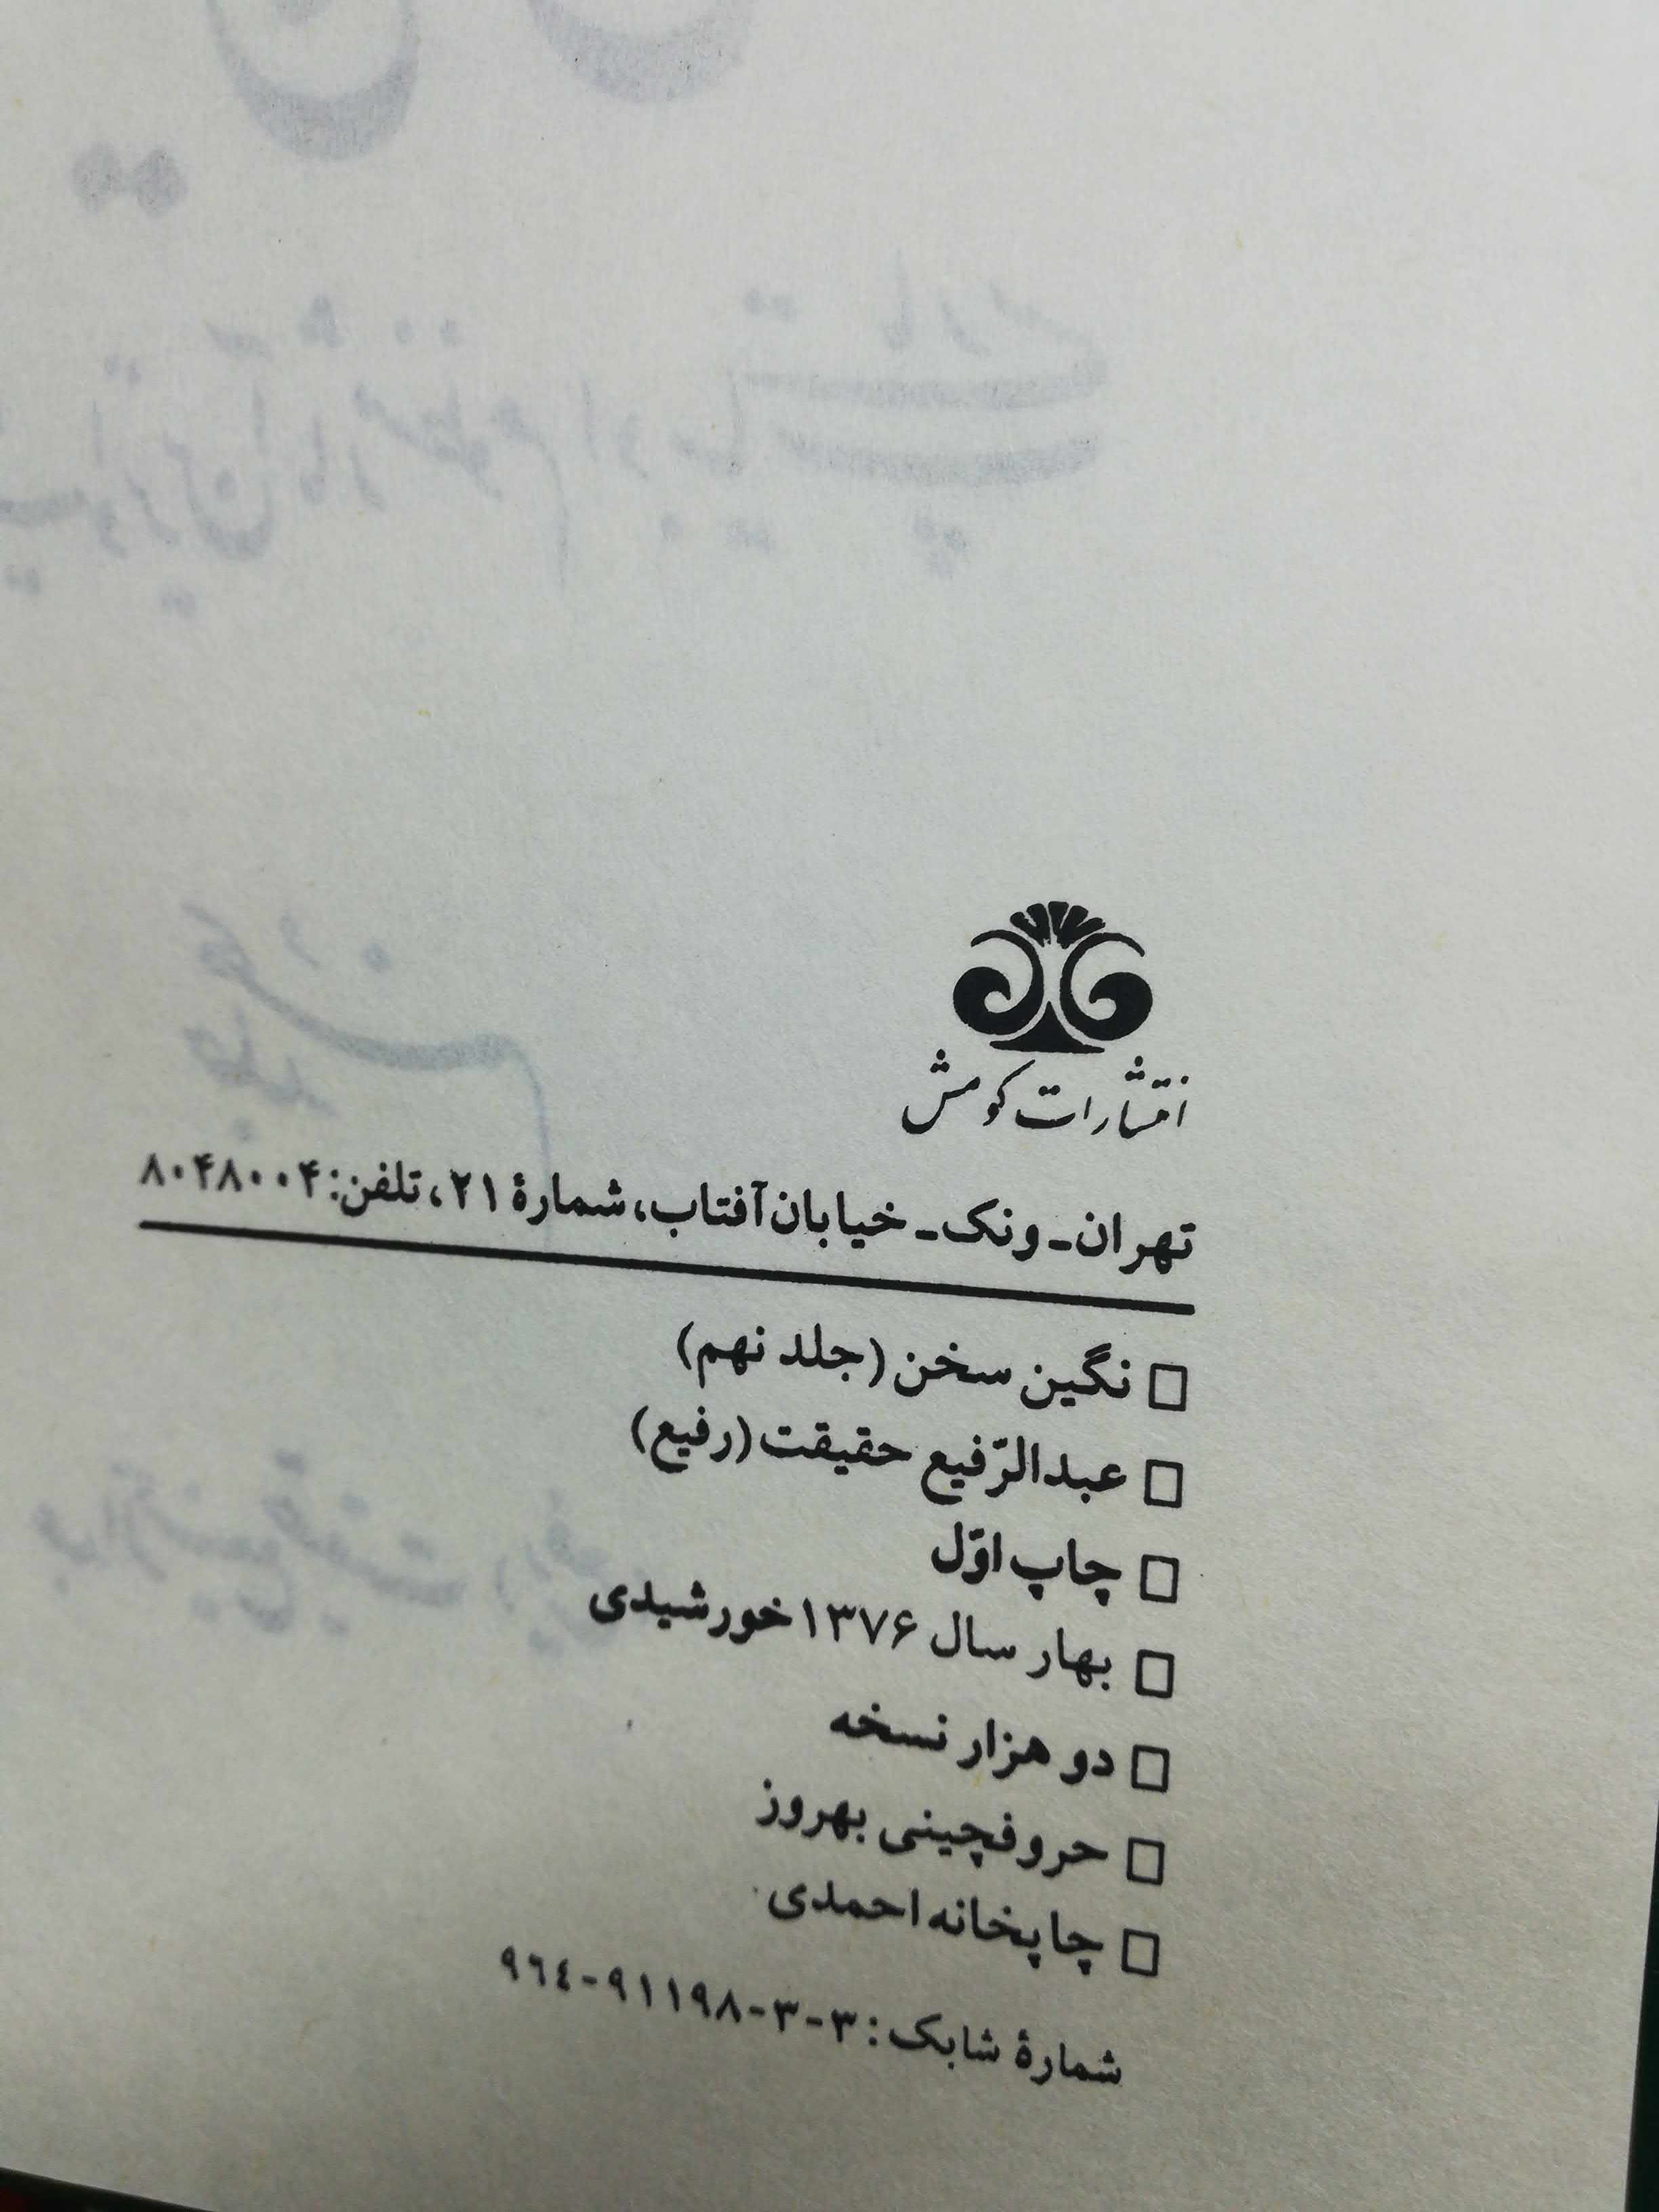 انتشارات کومش
تهران ـ ونک ـ خیابان آفتاب، شمارهٔ ۲۱، تلفن: ۸۰۴۸۰۰۴
□ نگین سخن (جلد نهم)
□ عبدالرّفیع حقیقت (رفیع)
□ چاپ اوّل
□ بهار سال ۱۳۷۶ خورشیدی
□ دو هزار نسخه
□ حروفچینی بهروز
□ چاپخانه احمدی
شمارهٔ شابک: ۳-۳-۹۱۱۹۸-۹٦٤